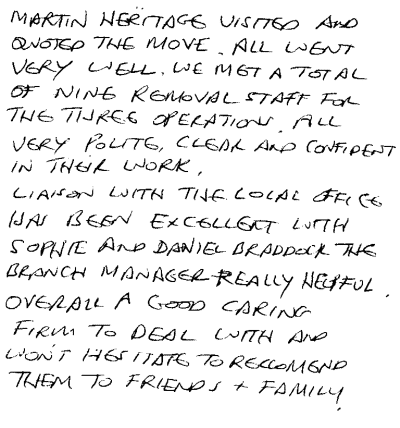 MARTIN HERITAGE VISITED AND
QUOTED THE MOVE. ALL WENT
VERY WELL. WE MET A TOTAL
OF NINE REMOVAL STAFF FOR
THE THREE OPERATIONS. ALL
VERY POLITE, CLEAR AND CONFIDENT
IN THEIR WORK.
LIAISON WITH THE LOCAL OFFICE
HAS BEEN EXCELLENT WITH
SOPHIE AND DANIEL BRADDOCK THE
BRANCH MANAGER REALLY HELPFUL.
OVERALL A GOOD CARING
FIRM TO DEAL WITH AND
WON'T HESITATE TO RECCOMEND
THEM TO FRIENDS + FAMILY.